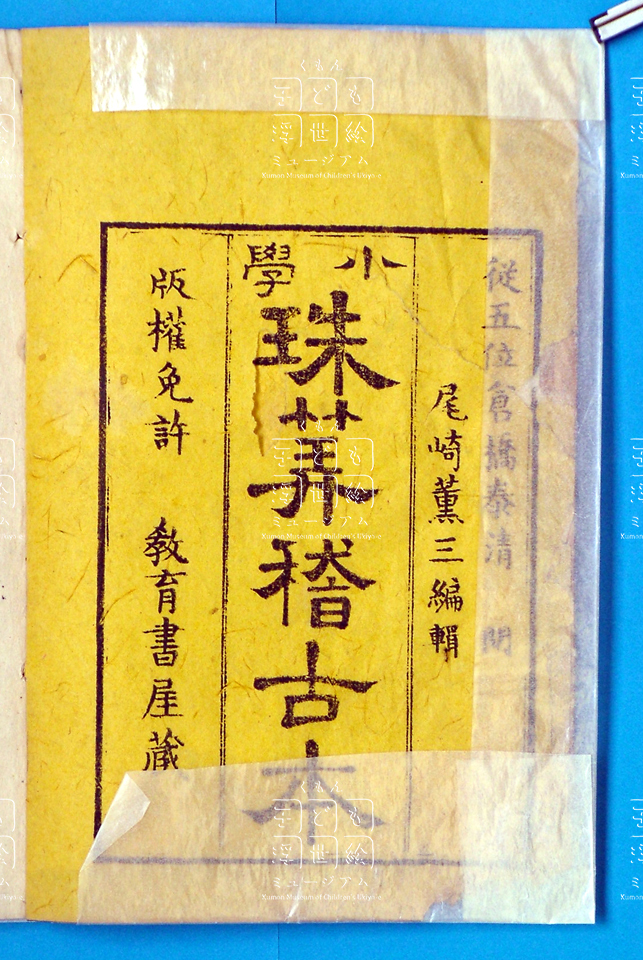 従五位倉橋泰清 閲
尾崎薫三編輯
小學
珠筭稽古本
版權免許 教育書屋蔵
くもん
子ども
浮世絵
ミュージアム
Kumon Museum of Children's Ukiyo-e